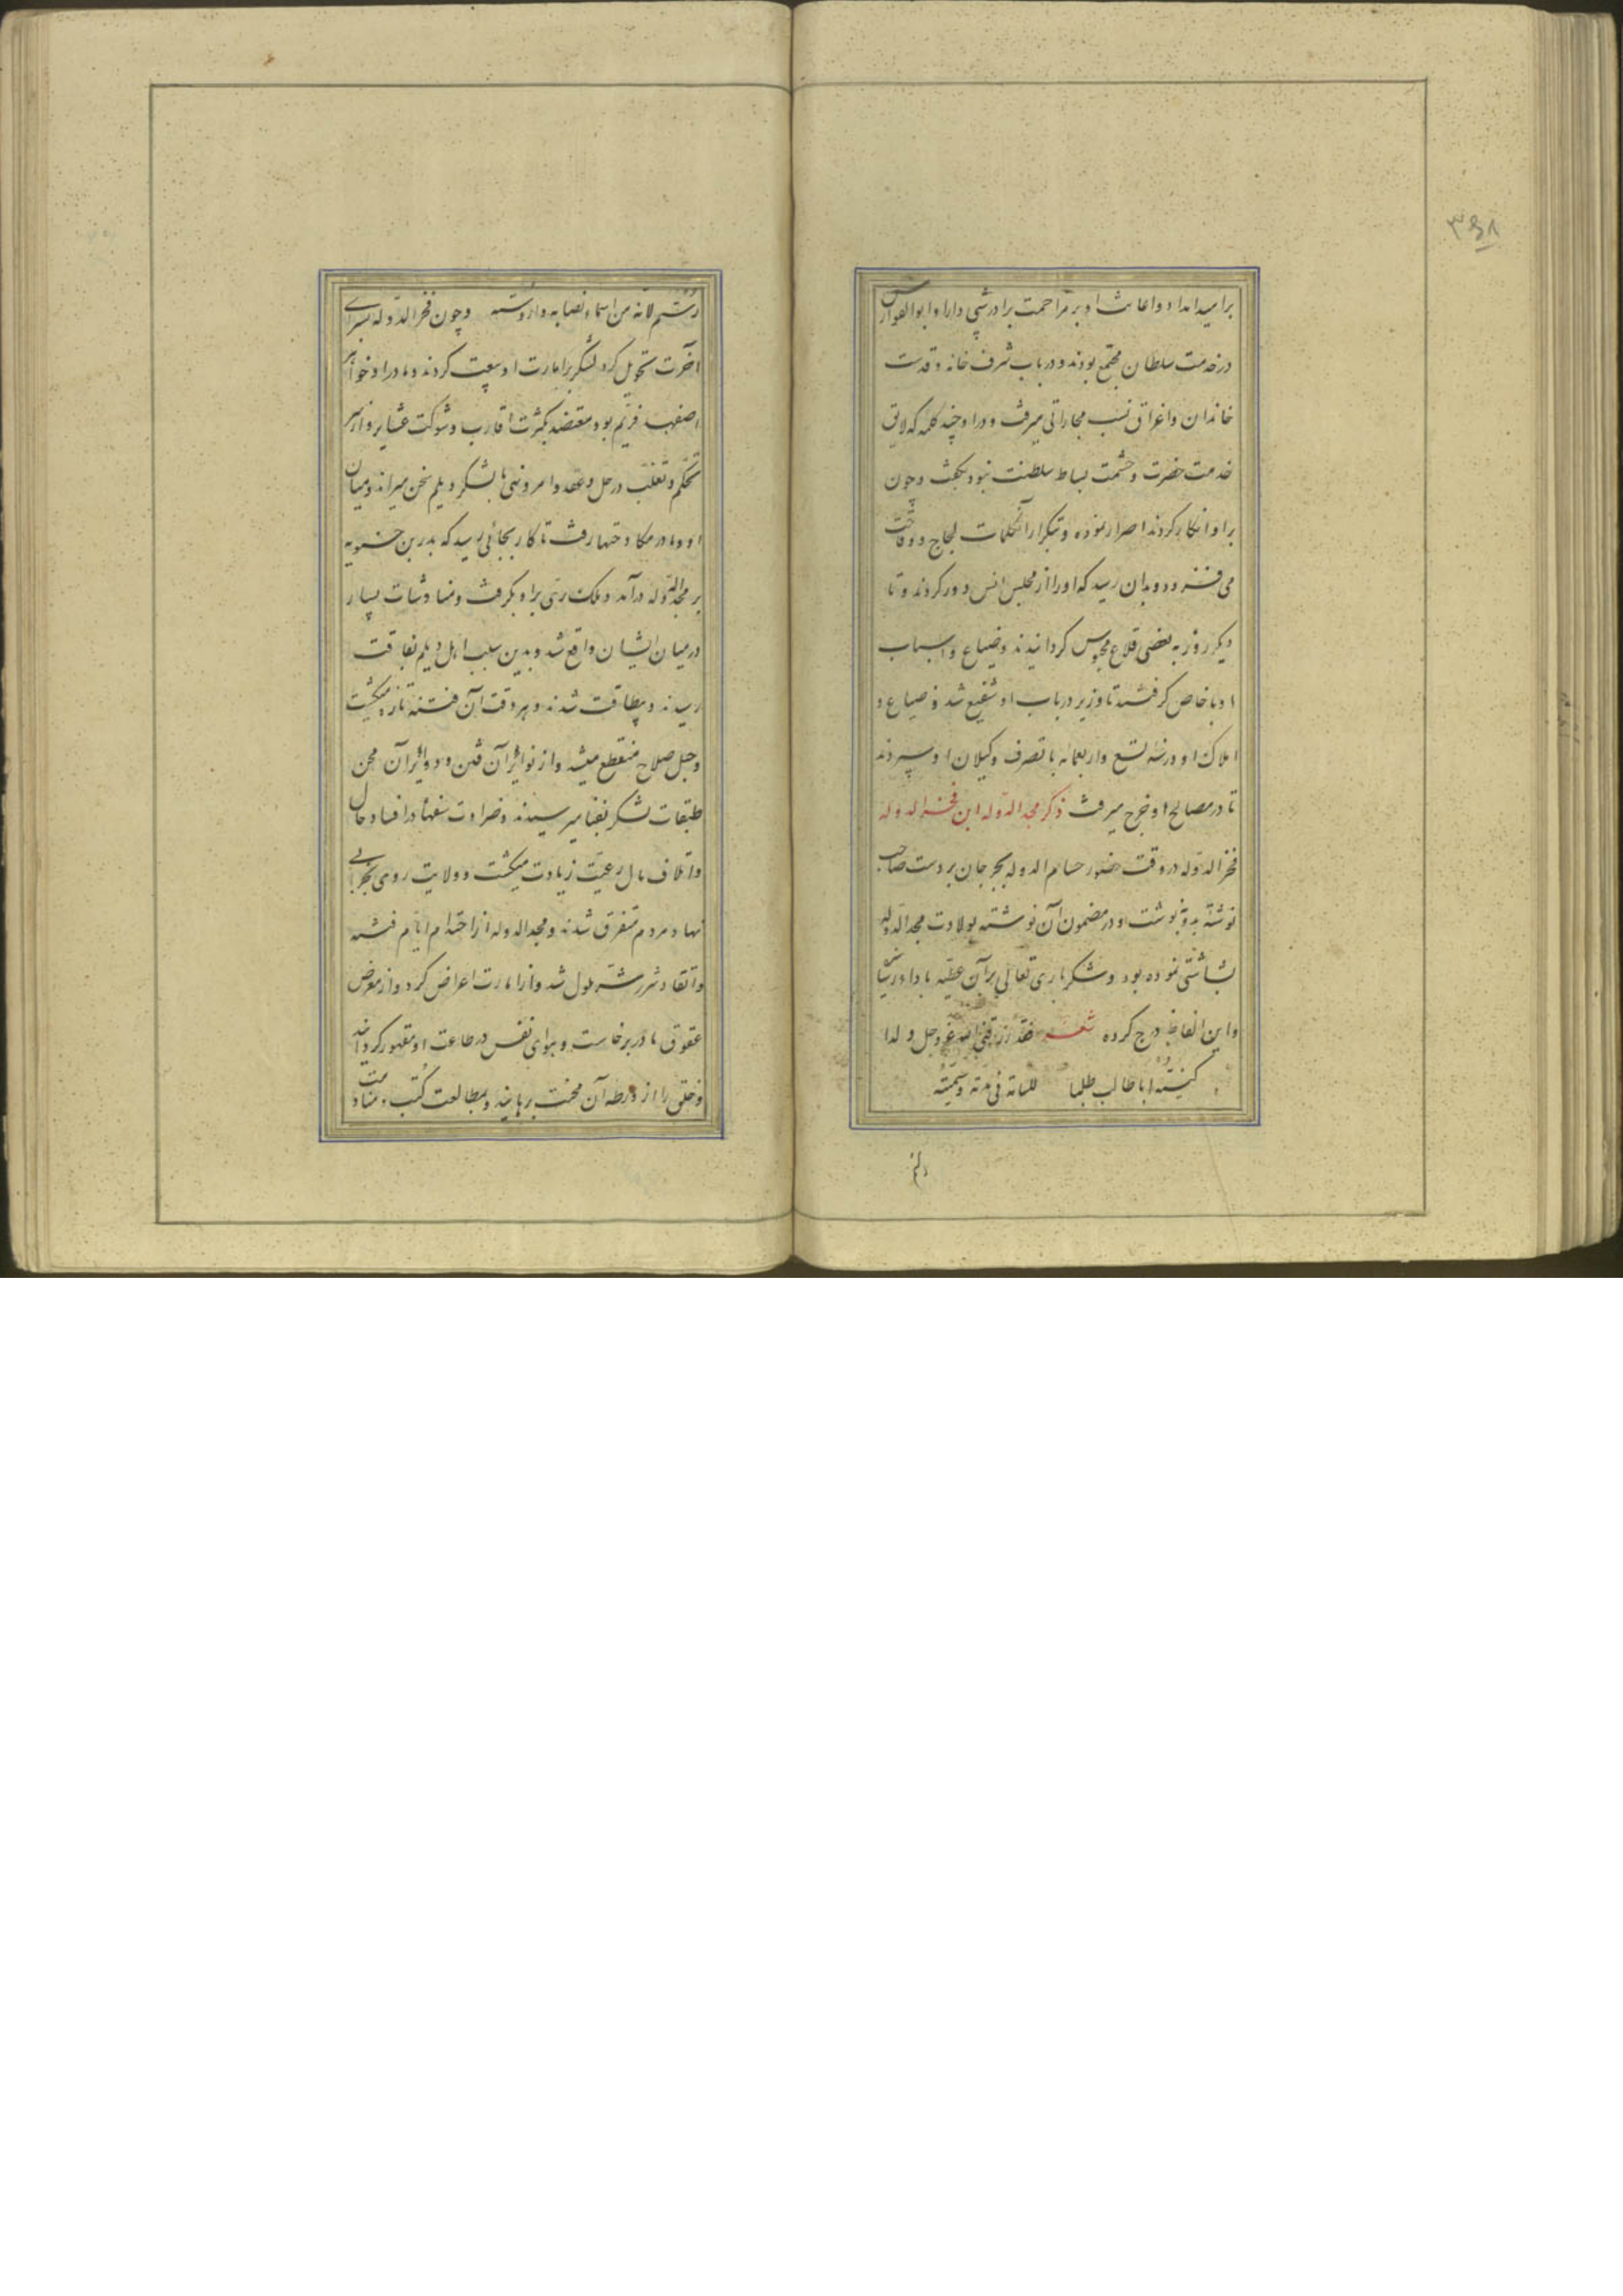 ۳۶۸
بر امید امداد و اعانت او بر مزاحمت برادرش دارا و ابوالفوارس
در خدمت سلطان مجتمع بودند و در باب شرف خانه و قدمت
خاندان و اعراق نسب مجاراتی میرفت و دارا چند کلمه که لایق
خدمت حضرت و حشمت بساط سلطنت نبود بگفت و چون
بر او انکار کردند اصرار نموده و تکرار آن کلمات لجاج و وقاحت
می‌افزود و بدان رسید که او را از مجلس انس دور کردند و تا
دیگر روز به بعضی قلاع محبوس گردانیدند و ضیاع و اسباب
او با خاص گرفتند تا وزیر در باب او شفیع شد و ضیاع و
املاک او در سنه تسع و اربعمائه با تصرف وکیلان او سپردند
تا در مصالح او خرج میرفت ذکر مجدالدوله ابن فخرالدوله
فخرالدوله در وقت حضور حسام‌الدوله بجرجان بر دست صاحب
نوشته بدو نوشت و در مضمون آن نوشته بولادت مجدالدوله
بشاشتی نموده بود و شکر باری تعالی بر آن عطیه بادا رسانیده
و این الفاظ درج کرده شعر فقد رزقنی الله عز وجل ولدا
کنیته اباطالب طلبا للمانه فی مدته وسمیته
رستم
رستم لانه من اسماء نصابه وارومته و چون فخرالدوله بسرای
آخرت تحویل کرد لشکر بر امارت او بیعت کردند و مادر او خواهر
اصفهبد فریم بود معتضد بکثرت اقارب و شوکت عشایر و از سر
تحکم و تغلب در حل و عقد و امر و نهی با لشکر دیلم سخن میراند و میان
او و مادر مکاوحتها رفت تا کار بجائی رسید که بدر بن حسنویه
بر مجدالدوله درآمد و ملک ری بر او بگرفت و مناوشات بسیار
در میان ایشان واقع شد و بدین سبب اهل دیلم بفاقت
رسیدند و بیطاقت شدند و هر وقت آن فتنه تازه میگشت
و حبل صلاح منقطع میشد و از نوائر آن فتن و دوائر آن محن
طبقات لشکر بفنا میرسیدند و ضراوت سفها در افساد حال
و اتلاف مال رعیت زیادت میگشت و ولایت روی بخرابی
نهاد و مردم متفرق شدند و مجدالدوله از احتدام ایام فتنه
و اتقاد شرر شر ملول شد و از امارت اعراض کرد و از معرض
عقوق مادر برخاست و هوای نفس در طاعت او مقهور گردانید
و خلق را از ورطه آن محنت برهانید و بمطالعت کتب و منادمت